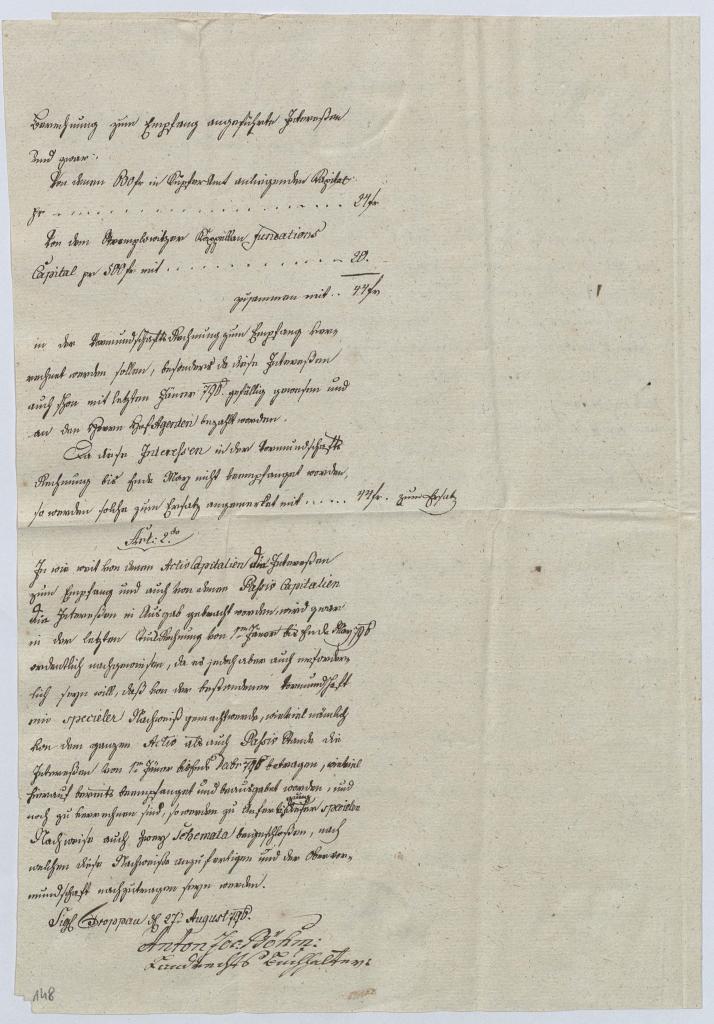 Berechnung zum Empfang angeführte Interessen
und zwar:
Von denen 600 fr in Kupferamt anliegenden Capital
pr - - - - - - - - - - - - - - - - 24 fr
Von dem Capellan Fundations
Capital pr 500 fr mit - - - - - - - - 20.
zusammen mit - - 44 fr
in der Vormundschafts Rechnung zum Empfang ver=
rechnet werden sollen, besonders da diese Interessen
auch schon mit letzten Jäner 798. gefällig gewesen und
an den Herrn Hof Agenten bezahlt worden.
Da diese Interessen in der Vormundschafts
Rechnung bis Ende May nicht beempfanget worden,
so werden solche zum Ersatz angemerket mit - - - - 44 fr. zum Ersatz
Art: 2do
In wie weit von denen Activ Capitalien die Interessen
zum Empfang und auch von denen Passiv Capitalien
die Interessen in Ausgab gebracht worden, wird zwar
in der letzten Rechnung von 1ten Jäner bis Ende May 798
ordentlich nachgewiesen, da es jedoch aber auch erforder=
lich seyn will, daß von der bestandenen Vormundschaft
ein specieler Nachweis gemacht werde, wieviel nämlich
von dem ganzen Activ als auch Passiv Stande die
Interessen von 1ten Jäner bis Ende 798 betragen, wieviel
hierauf bereits beempfanget und beausgabet worden, und
noch zu verrechnen sind, so werden zu Anfertigung dieser specielen
Nachweise auch zwey Schemata beygeschlossen, nach
welchen diese Nachweise anzufertigen und der Obervor=
mundschaft nachzutragen seyn werden.
Sigl Troppau d 27t August 798.
Anton Jos. Böhm:
Landrechts Buchhalter:
148